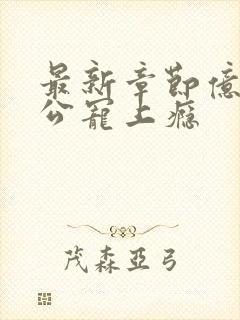 最新章節億
公寵上癮
茂森亞弓